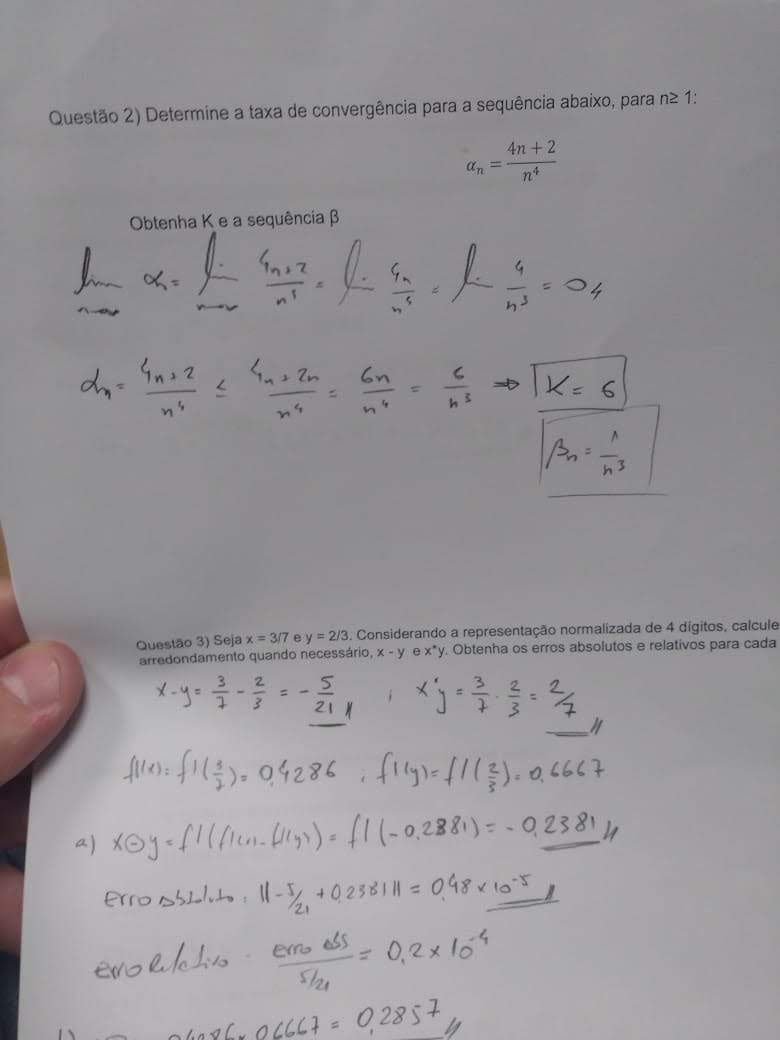 Questão 2) Determine a taxa de convergência para a sequência abaixo, para n≥ 1:
αn = (4n + 2)/n⁴
Obtenha K e a sequência β
lim n→∞ αn = lim n→∞ (4n+2)/n⁴ = lim 4n/n⁴ = lim 4/n³ = 0
αn = (4n+2)/n⁴ ≤ (4n+2n)/n⁴ = 6n/n⁴ = 6/n³ ⇒ K = 6
βn = 1/n³
Questão 3) Seja x = 3/7 e y = 2/3. Considerando a representação normalizada de 4 dígitos, calcule
arredondamento quando necessário, x - y e x*y. Obtenha os erros absolutos e relativos para cada
x-y = 3/7 - 2/3 = - 5/21 ; x·y = 3/7 · 2/3 = 2/7
fl(x) = fl(3/7) = 0,4286 ; fl(y) = fl(2/3) = 0,6667
a) x⊖y = fl(fl(x) - fl(y)) = fl(-0,2381) = -0,2381
erro absoluto: ||-5/21 + 0,2381|| = 0,48 × 10⁻⁵
erro relativo = erro abs/5/21 = 0,2 × 10⁻⁴
0,6667 = 0,2857